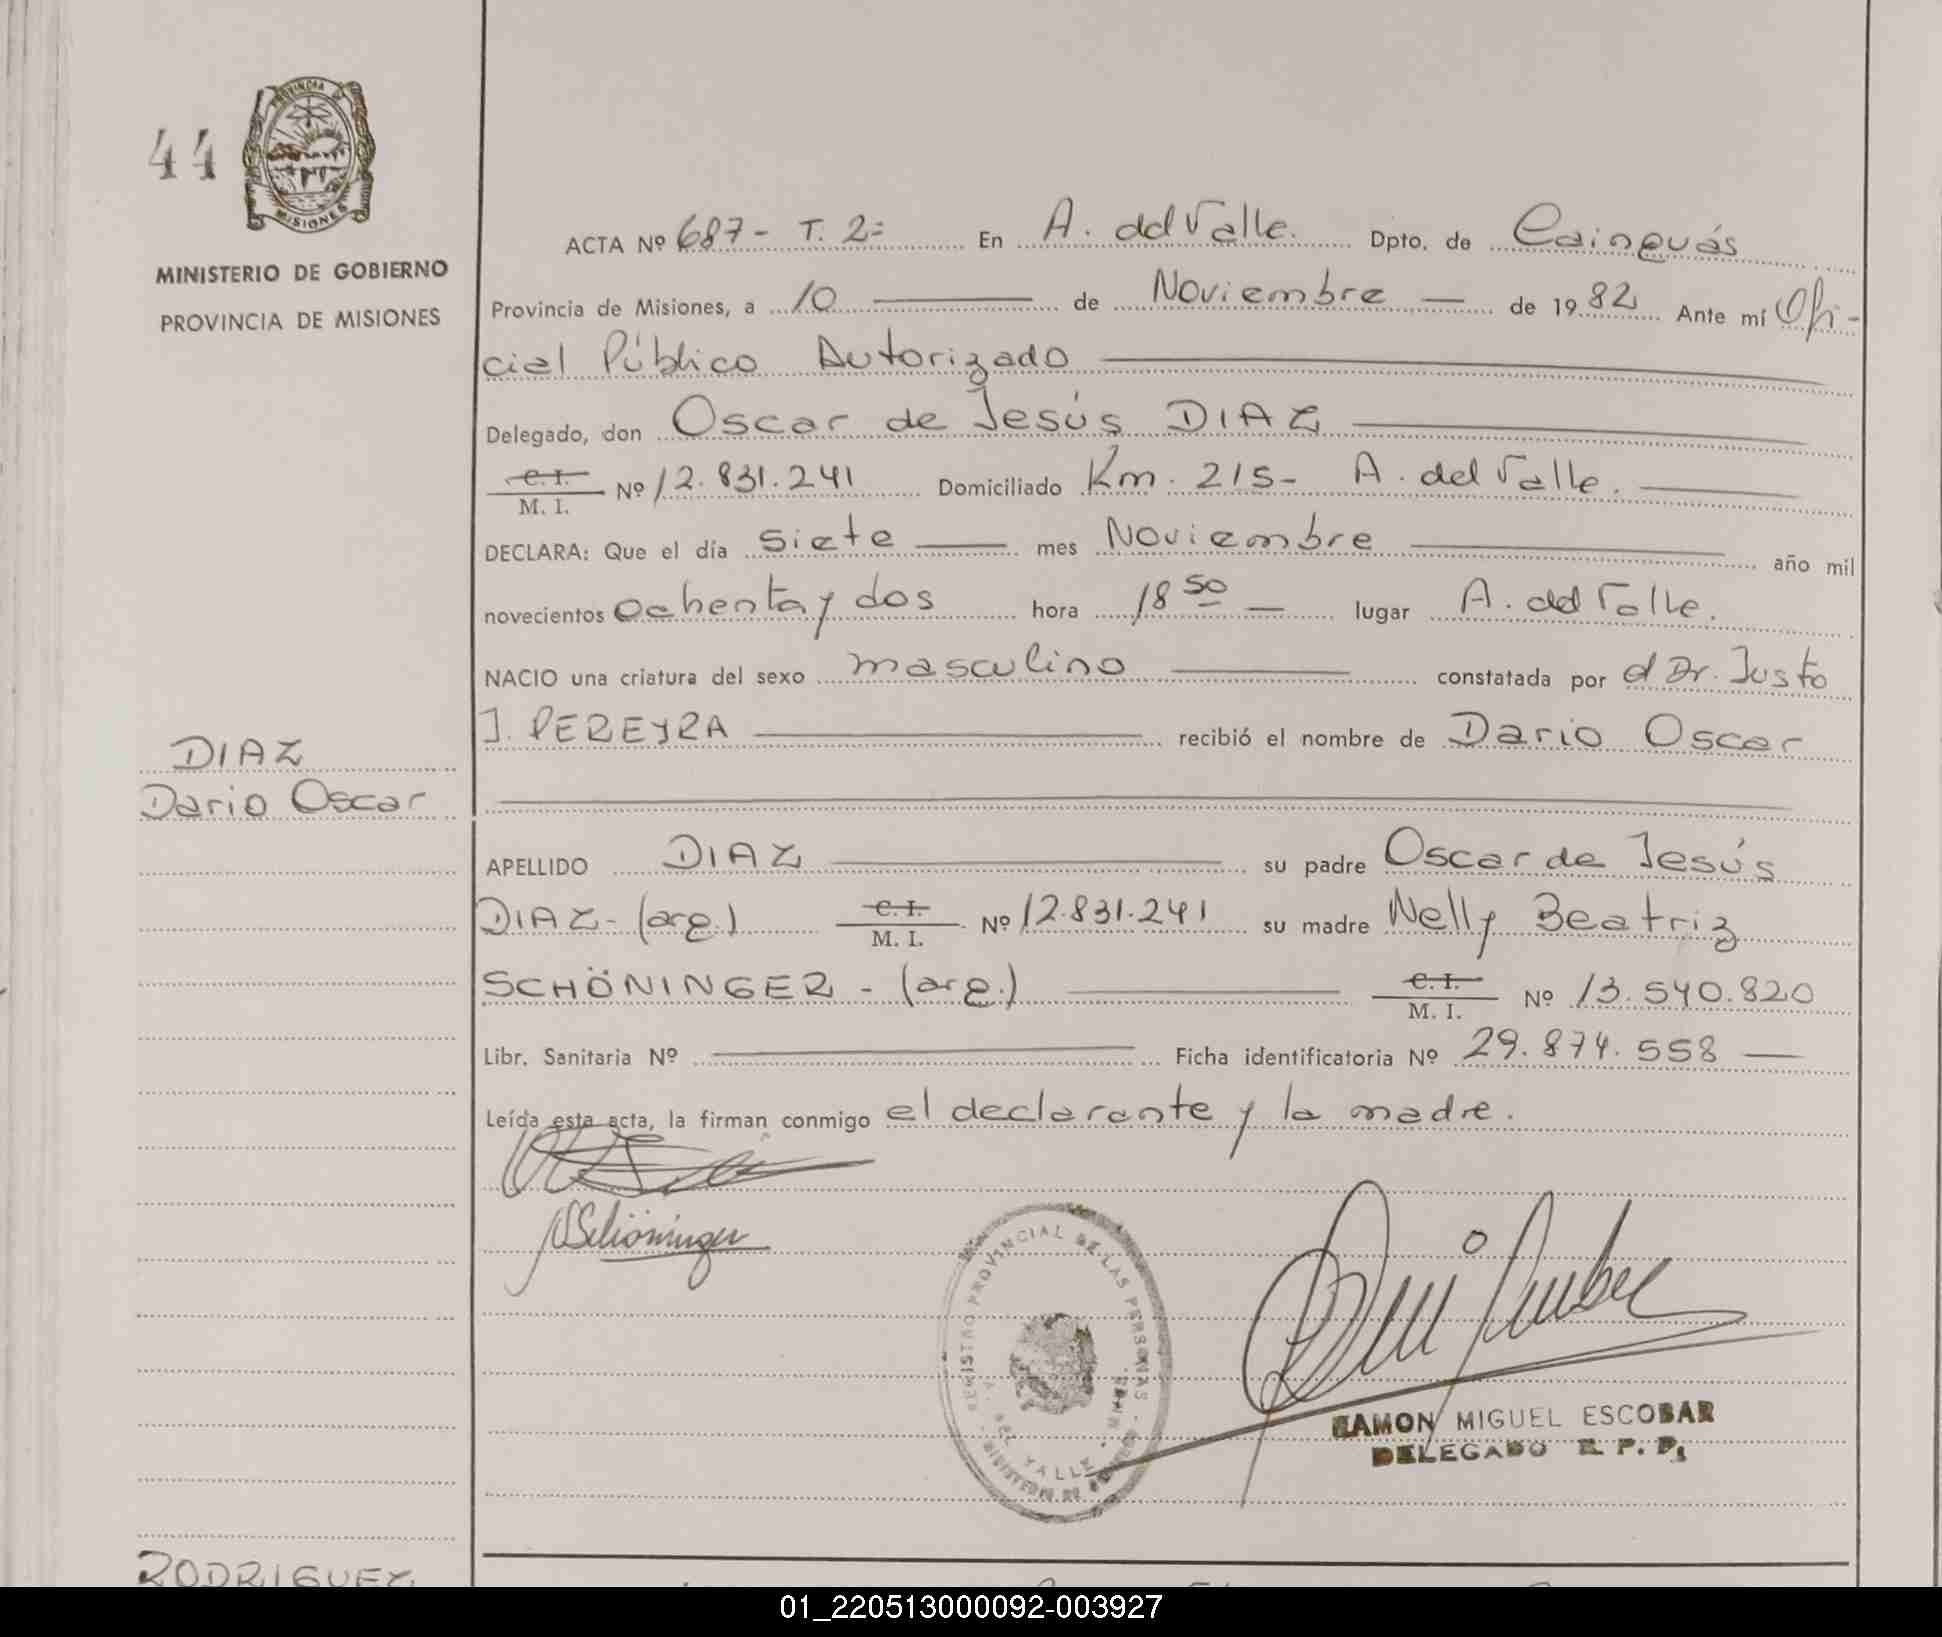 44
PROVINCIA DE
MISIONES
MINISTERIO DE GOBIERNO
PROVINCIA DE MISIONES
ACTA Nº 687 - T. 2= En A. del Valle. Dpto. de Cainguás
Provincia de Misiones, a 10 de Noviembre de 1982 Ante mí Ofi-
cial Público Autorizado
Delegado, don Oscar de Jesús DIAZ
C. I.
M. I. Nº 12.831.241 Domiciliado Km. 215- A. del Valle.
DECLARA: Que el día siete mes Noviembre año mil
novecientos ochenta y dos hora 18 50 lugar A. del Valle.
NACIO una criatura del sexo masculino constatada por el Dr. Justo
J. PEREYRA recibió el nombre de Dario Oscar
DIAZ
Dario Oscar
APELLIDO DIAZ su padre Oscar de Jesús
DIAZ - (arg.) C. I.
M. I. Nº 12.831.241 su madre Nelly Beatriz
SCHÖNINGER - (arg.) C. I.
M. I. Nº 13.540.820
Libr. Sanitaria Nº Ficha identificatoria Nº 29.874.558
Leída esta acta, la firman conmigo el declarante y la madre.
Schöninger
REGISTRO PROVINCIAL DE LAS PERSONAS
A. DEL VALLE
RAMON MIGUEL ESCOBAR
DELEGADO R. P. P.
RODRIGUEZ
01_220513000092-003927